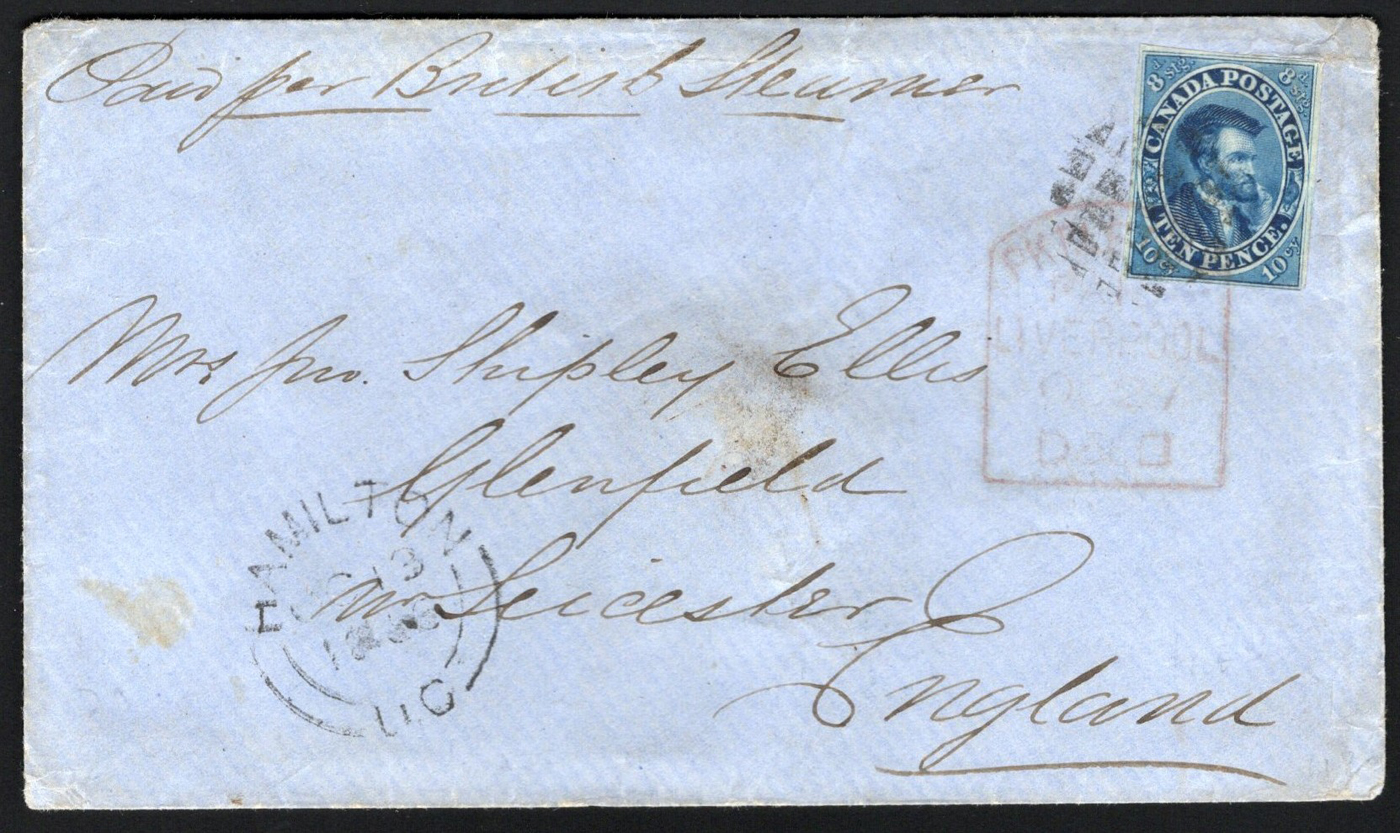 Paid per British Steamer
8d Stg. 8d Stg.
CANADA POSTAGE
TEN PENCE.
10 cy. 10 cy.
LIVERPOOL
Mrs Jno. Shipley Ellis
Glenfield
nr Leicester
England
HAMILTON
13
U.C